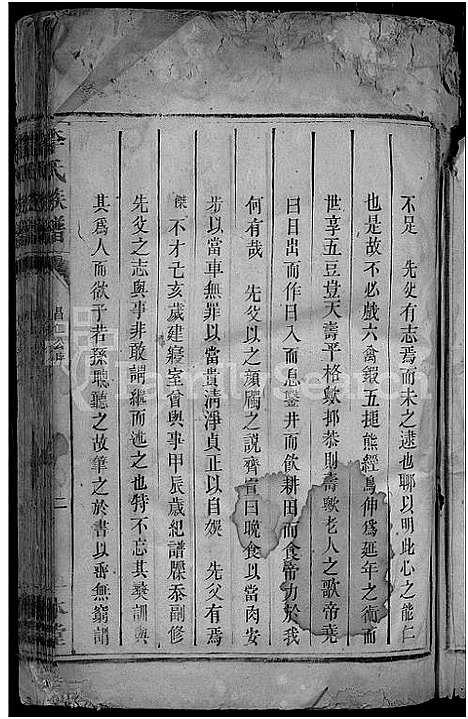 不足 先父有志焉而未之逮也聊以明此心之能仁
也是故不必戲六禽鍛五㮔能經鳥伸爲延年之術而
世享五豆豈天壽平格歟抑恭則壽歟老人之歌帝堯
曰日出而作日入而息鑿井而飲耕田而食帝力於我
何有哉 先父以之顔斶之説齊宣曰晚食以當肉安
步以當車無罪以當貴清淨貞正以自娯 先父有焉
傑不才乙亥歲建寢室曾與事甲辰歲紀譜牒忝副修
先父之志與事非敢謂繼而述之也特不忘其彜訓與
其爲人而欲子若孫聰聽之故筆之於書以垂無窮謂
李氏族譜
二